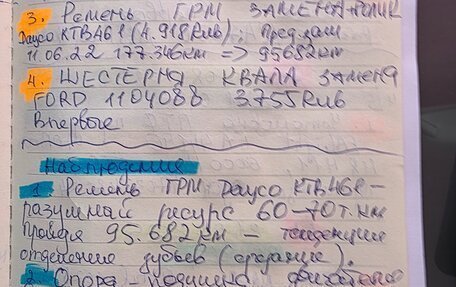 3. Ремень ГРМ ЗАМЕНА+РОЛИК
Dayco KTB461 (4.918 Rub). Пред. зам
11.06.22 177.346км => 95682км
4. ШЕСТЕРНЯ КВАЛА ЗАМЕНА
FORD 1104088 3.755 Rub
Впервые
Наблюдения
1. Ремень ГРМ Dayco KTB461 -
разумный ресурс 60-70 т. км
95.682км - тенденции
отделение зубьев (срезание).
2. Опора - подушка двигателя